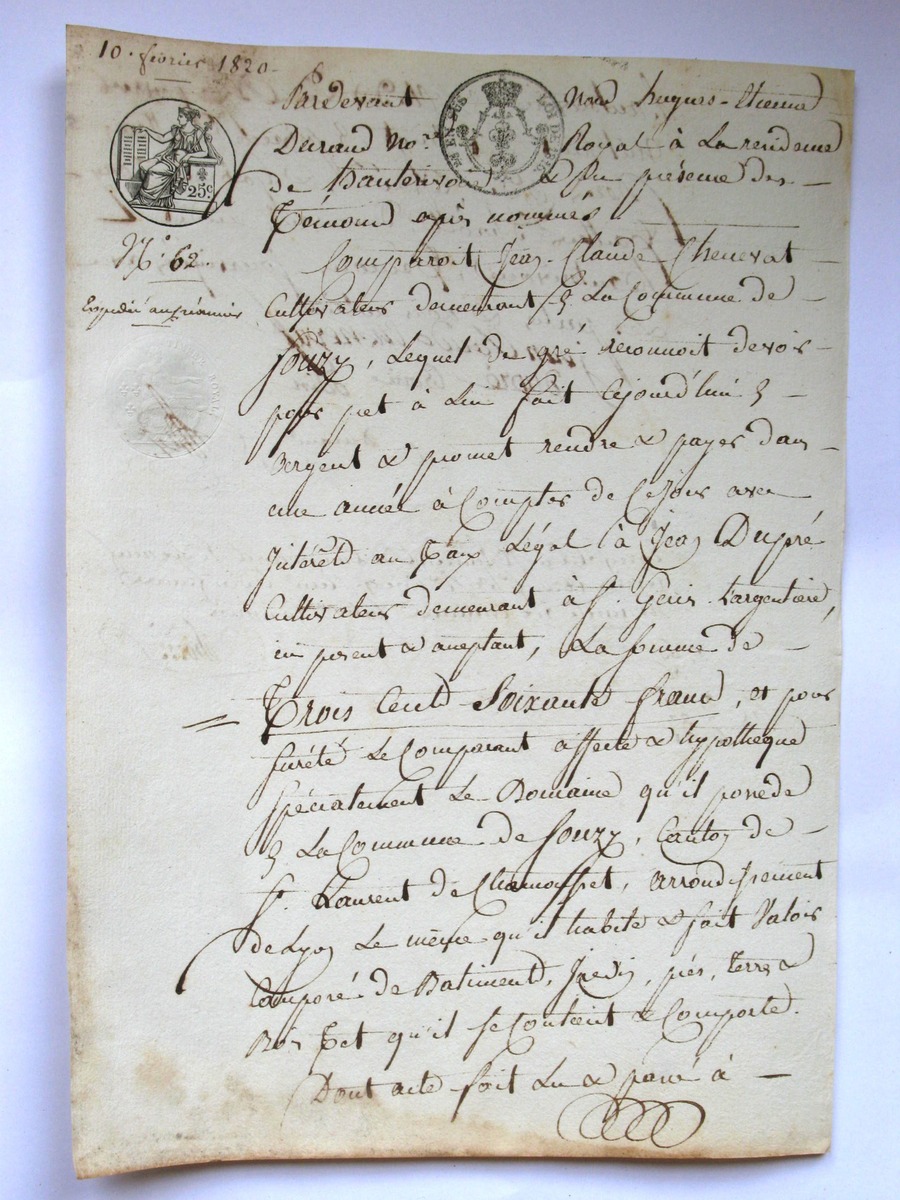 10. février 1820.
Pardevant Nous hugues-Etienne
Durand No.re Royal à La rendeme
de hauterivoire & En présence des
Témoins après nommés
N.o 62.
Comparoit Jean Claude Chenevat
Expédié au créancier
Cultivateur demeurant en La Commune de
Souzy, Lequel de gré reconnoit devoir
pour pret à Lui fait Cejourd'hui en
argent & promet rendre & payer dans
une année à Compter de Cejour avec
Intérêts au Taux Légal à Jean Dupré
Cultivateur demeurant à St. Genis-Largentière,
ici présent & acceptant, La Somme de
Trois Cents Soixante francs, et pour
sureté Le Comparant affecte & hypothèque
spécialement Le Domaine qu'il possède
en La Commune de Souzy, Canton de
St. Laurent de Chamousset, arrondissement
de Lyon Le même qu'il habite & fait Valoir
Composé de Batiments, Jardin, prés, terres &
Bois Tel qu'il se Contient & Comporte.
Dont acte fait Lu & passé à
25c.